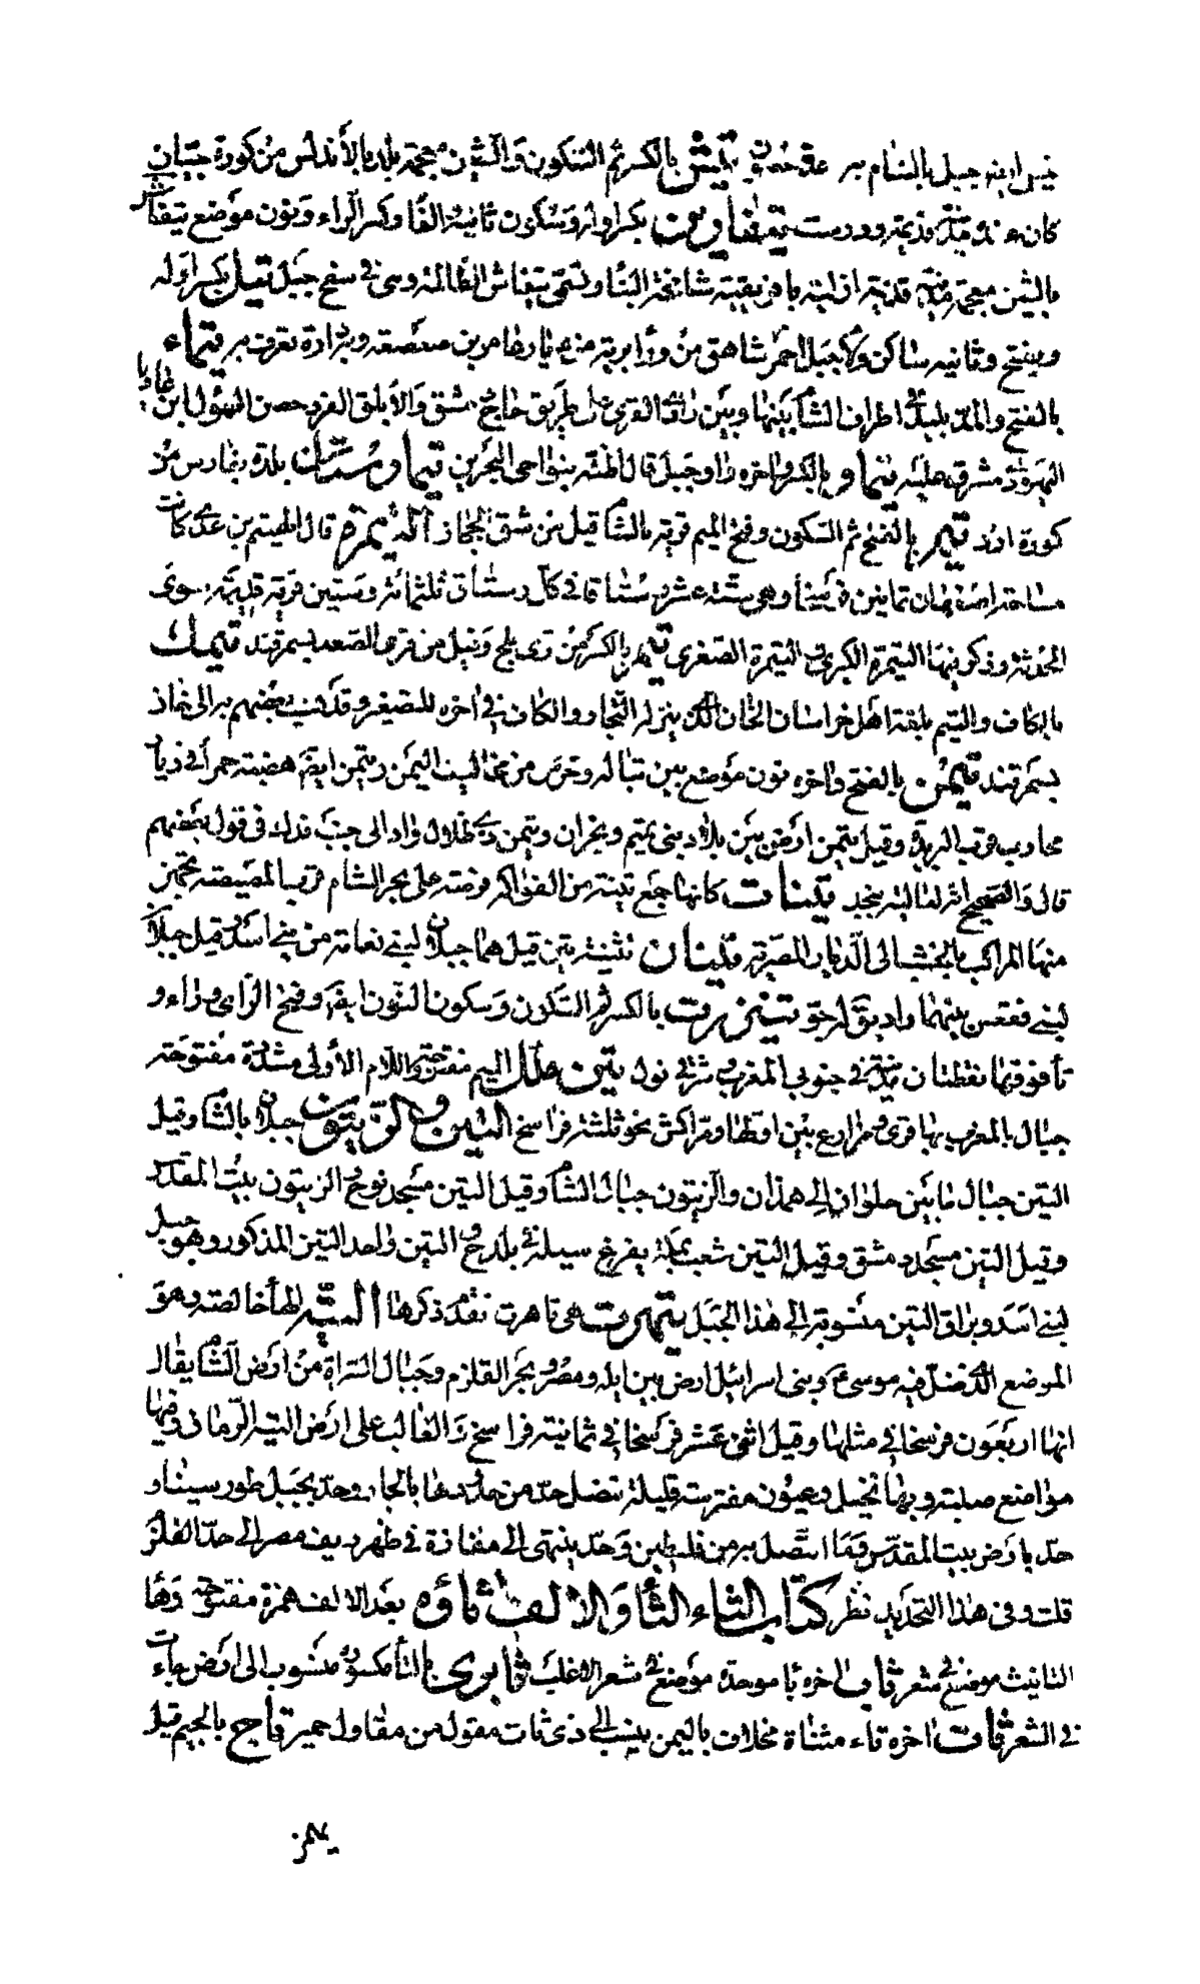 قيل ايضا جبل بالشام به عدة حصون تيش بالكسر ثم السكون والشين معجمة بلد بالأندلس من كورة جيان
كان مدينة قديمة ودرست تيفارين بكسر اوله وسكون ثانيه الفا وكسر الراء ونون موضع تيفاش
بالشين معجمة مدينة قديمة ازلية بافريقية شامخة البناء وتسمى تيفاش الظالمة وهى في سفح جبل تيل بكسر اوله
ويفتح وثانيه ساكن ولام جبل احمر شاهق من وراء تربة من ديار عامر بن صعصعة وبه دارة تعرف به تيماء
بالفتح والمد بليد في اطراف الشام بينها وبين وادى القرى على طريق حاج دمشق والأبلق الفرد حصن السموأل ابن عاديا
اليهودى مشرف عليه تيماو بالكسر واخره واو جبل قال اظنه بنواحى البحرين تيماورستان بلدة بفارس من
كورة ارد تيمر بالفتح ثم السكون وفتح الميم قرية بالشام وقيل من شق الحجاز التيمرة قال الهيثم بن عدى كانت
مساحة اصفهان ثمانين فرسخا وهى ستة عشر رستاقا في كل رستاق ثلثمائة وستين قرية قديمة سوى
المحدثة وذكر فيها التيمرة الكبرى والتيمرة الصغرى تيم بالكسر من قرى بلخ وقيل من قرى الصغد بسمرقند تيمك
بالكاف والتيم بلغة اهل خراسان الخان الذى ينزله التجار والكاف في اخره للتصغير وقد نسب بعضهم به الى خان
بسمرقند تيمن بالفتح واخره نون موضع بين تبالة وجرش من مخاليف اليمن وتيمن ايضا هضبة حمراء في ديار
محارب قرب الربذة وقيل تيمن ارض بين بلاد بنى تميم ونجران وتيمن ذى ظلال واد الى جنب فدك في قول بعضهم
قال والصحيح انه بعالية نجد تينات كانها جمع تينة من الفواكه فرضة على بحر الشام قرب المصيصة تجهز
منها المراكب بالخشب الى الديار المصرية تينان تثنية تين قيل هما جبلان لبنى نعامة من بنى اسد وقيل جبلان
لبنى فقعس بينهما واد يقال له خو تينزرت بالكسر ثم السكون وسكون النون ايضا وفتح الزاى وراء و
تاء فوقها نقطتان مدينة في جنوبي المغرب شرقى نول تين ملل الميم مفتوحة واللام الأولى مشددة مفتوحة
جبال بالمغرب بها قرى ومزارع بين اولها ومراكش نحو ثلثة فراسخ التين والزيتون جبلان بالشام وقيل
التين جبال ما بين حلوان الى همذان والزيتون جبال الشام وقيل التين مسجد نوح والزيتون بيت المقدس
وقيل التين مسجد دمشق وقيل التين شعب بمكة يفرغ سيله في بلدح والتين واحد التين المذكور وهو جبل
لبنى اسد وبراق التين منسوبة الى هذا الجبل تيهرت هى تاهرت تقدم ذكرها التيه الهاء خالصة وهو
الموضع الذى ضل فيه موسى وبنى اسرائيل ارض بين ايلة ومصر وبحر القلزم وجبال السراة من ارض الشام يقال
انها اربعون فرسخا في مثلها وقيل اثنى عشر فرسخا في ثمانية فراسخ والغالب على ارض التيه الرمال وفيها
مواضع صلبة وبها نخيل وعيون مفترشة قليلة تتصل حد من حدودها بالجفار وحد بجبل طور سينا و
حد بارض بيت المقدس وما اتصل به من فلسطين وحد ينتهى الى مفازة في ظهر ريف مصر الى حد القلزم
قلت وفى هذا التحديد نظر كتاب الثاء الثاء والالف ثاؤه بعد الالف همزة مفتوحة وهاء
التانيث موضع في شعر ثاب اخره باء موحدة موضع في شعر الاغلب ثابرى بالثاء مكسورة منسوب الى ارض جاءت
في الشعر ثات اخره تاء مثناة مخلاف باليمن ينسب الى ذى ثات مقول من مقاول حمير ثاج بالجيم قيل
يهمز